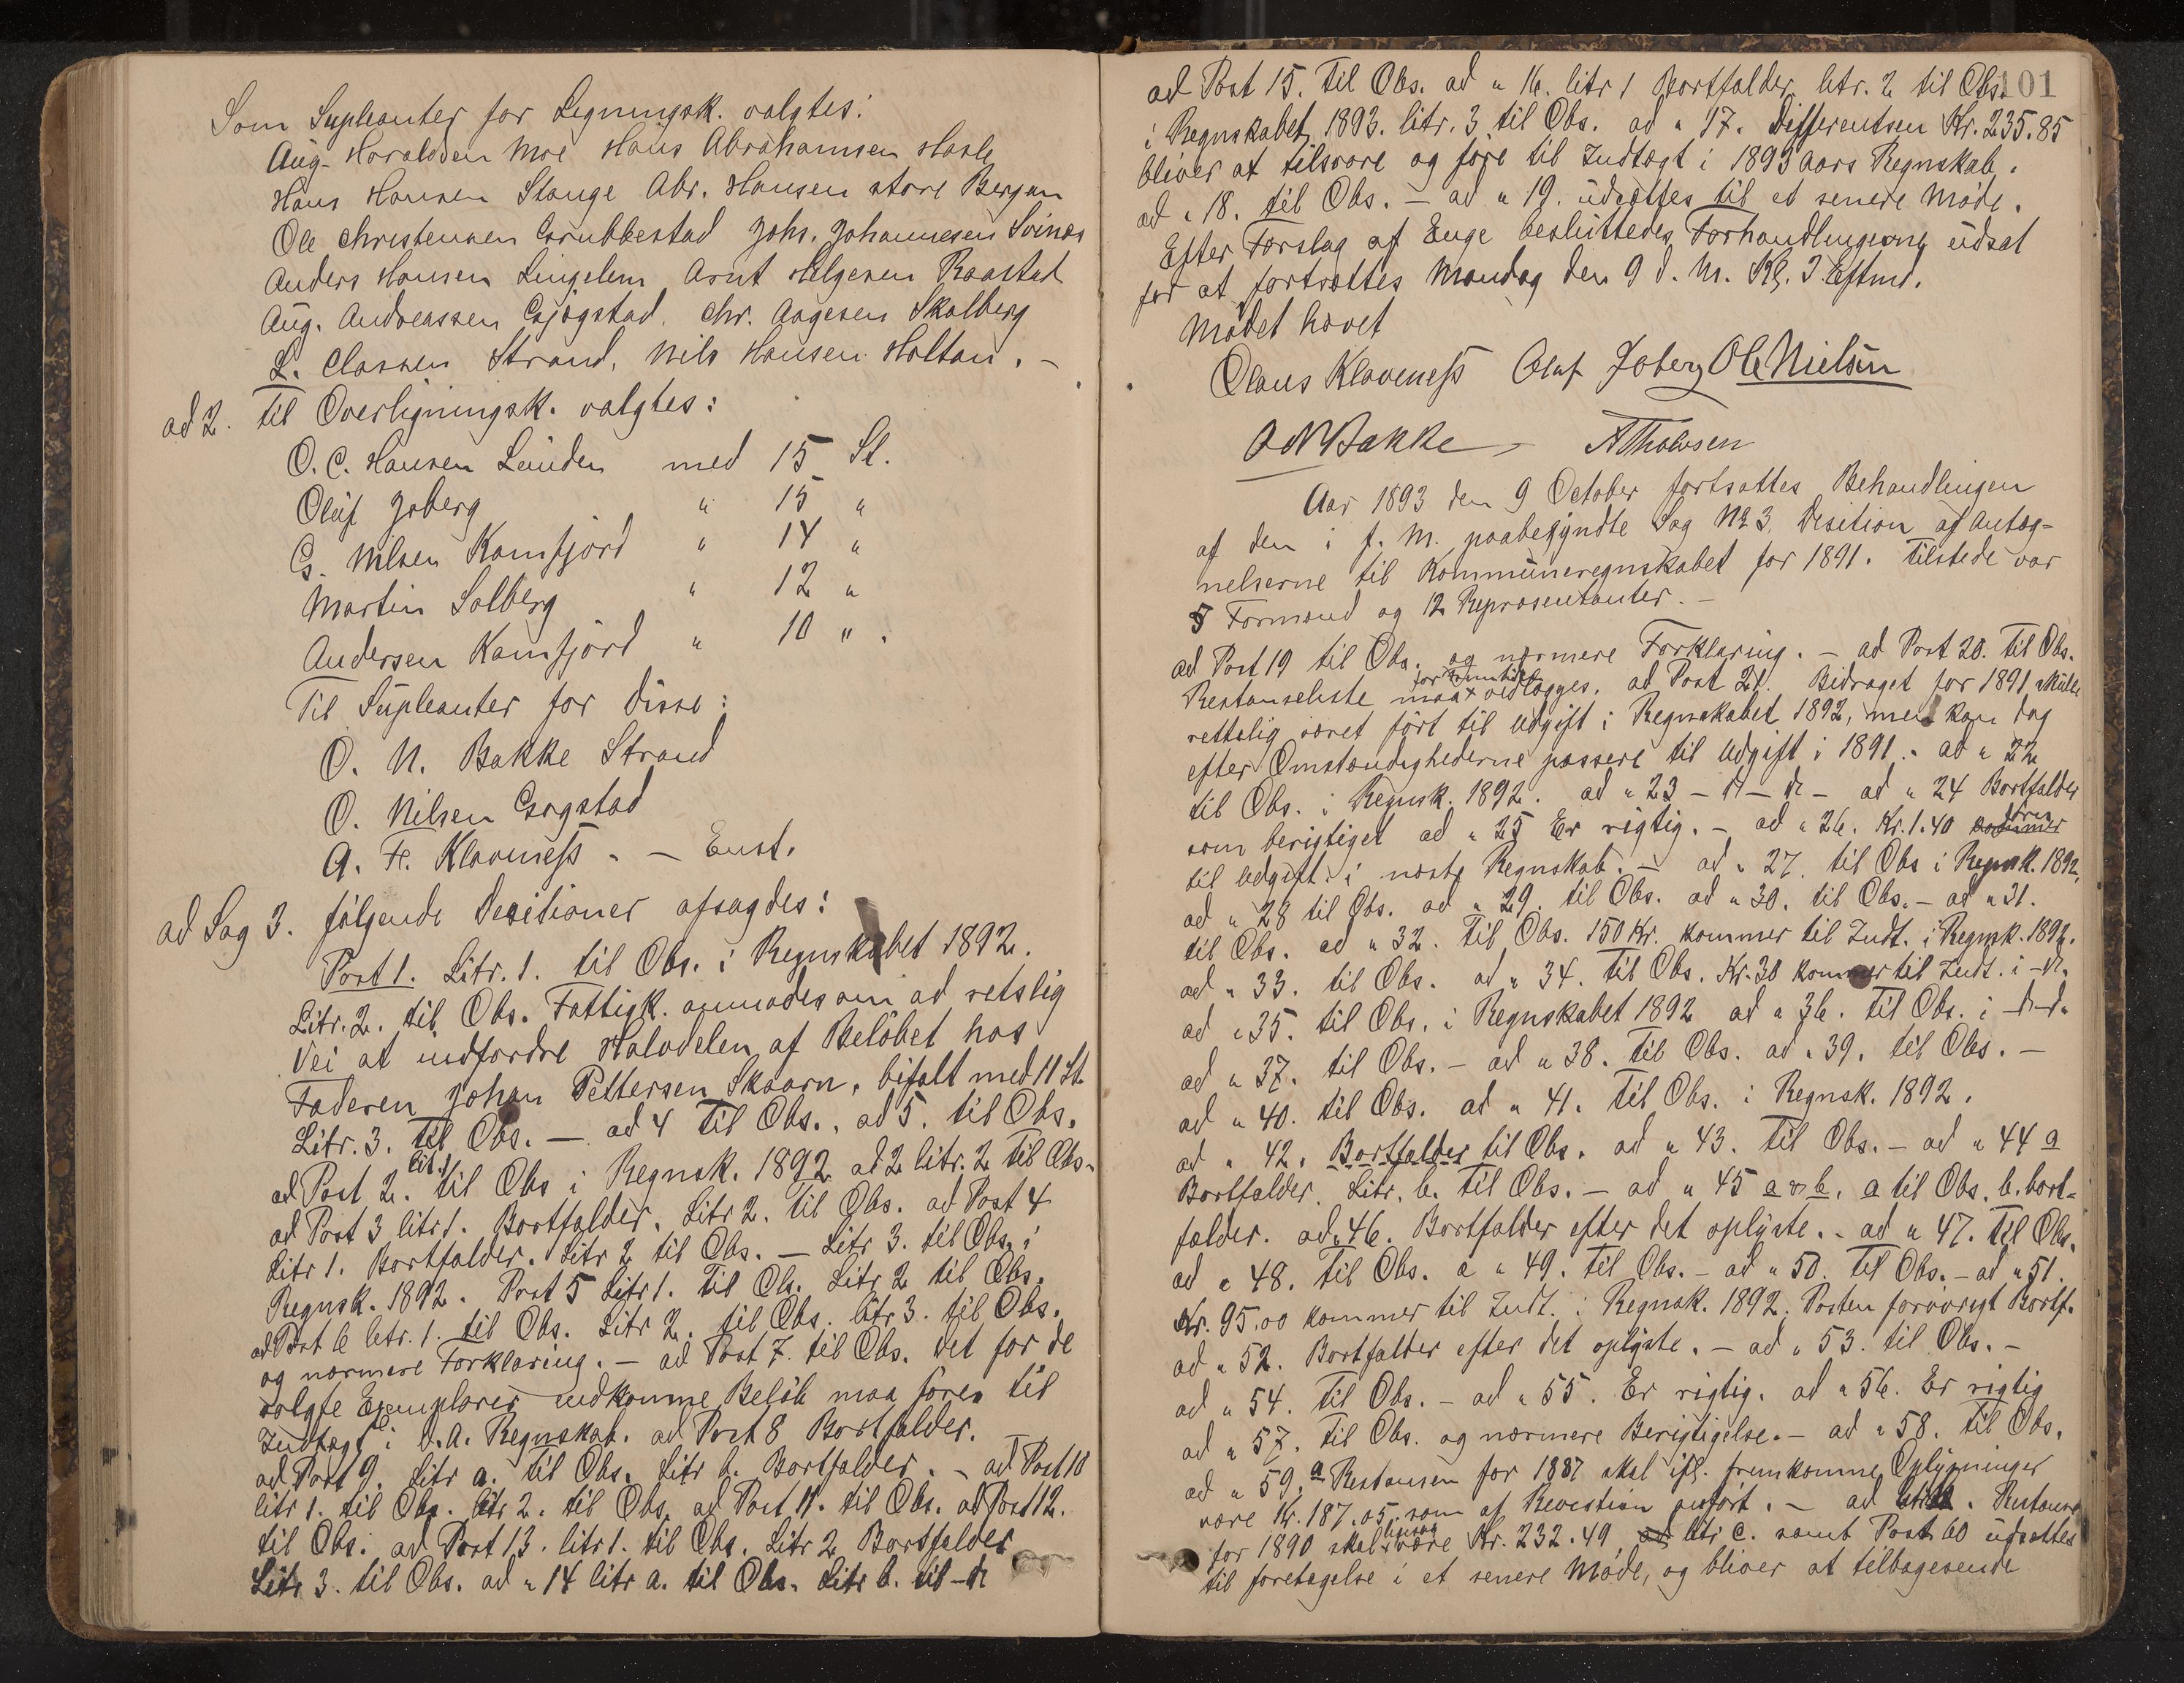 Som Supleanter for Ligningsk. valgtes:
Aug. Haraldsen Moe Hans Abrahamsen Hasle
Hans Hansen Stange Abr. Hansen store Bergan
Ole Christensen Grubbestad Johs. Johannesen Svinæs
Anders Hansen Lingelem Arnt Helgesen Raastad
Aug. Andreassen Gjøgstad. Chr. Aagesen Skalberg
L. Classen Strand, Nils Hansen Holtan. –
ad 2. Til Overligningsk. valgtes:
O. C. Hansen Lunden med 15 St.
Oluf Joberg " 15 "
G. Nilsen Kamfjord " 14 "
Martin Solberg " 12 "
Andersen Kamfjord " 10 ".
Til Supleanter for disse:
O. N. Bakke Strand
O. Nilsen Gogstad
A. Fr. Klavness. – Enst.
ad Sag 3. følgende Desitioner afsagdes:
Post 1. Litr. 1. til Obs. i Regnskabet 1892.
Litr. 2. til Obs. Fattigk. anmodes om ad retslig
Vei at indfordre Halvdelen af Beløbet hos
Faderen Johan Pettersen Skaarn, bifalt med 11 St.
Litr. 3. til Obs. – ad 4 Til Obs., ad 5. til Obs.
ad Post 2. lit. 1 til Obs i Regnsk. 1892 ad 2 litr. 2 til Obs.
ad Post 3 litr 1. Bortfalder. Litr 2. til Obs. ad Post 4
Litr 1. Bortfalder. Litr 2 til Obs. – Litr 3. til Obs. i
Regnsk. 1892. Post 5 Litr 1. Til Obs. Litr 2 til Obs.
ad Post 6 litr. 1. til Obs. Litr 2. til Obs. litr 3. til Obs.
og nærmere Forklaring. – ad Post 7. til Obs. Det for de
solgte Exemplarer indkomne Beløb maa føres til
Indtægt i d. A. Regnskab. ad Post 8 Bortfalder.
ad Post 9. Litr a. til Obs. Litr b. Bortfalder. – ad Post 10
litr 1. til Obs. litr 2. til Obs. ad Post 11. til Obs. ad Post 12.
til Obs. ad Post 13. litr 1. til Obs. Litr 2 Bortfalder
Litr 3. til Obs. ad " 14 litr a. til Obs. Litr b. til – d.
101
ad Post 15. Til Obs. ad " 16. litr 1 Bortfalder, litr. 2 til Obs.
i Regnskabet 1893. litr. 3 til Obs. ad " 17. Differentsen Kr. 235.85
bliver at tilsvare og føre til Indtægt i 1893 aars Regnskab.
ad " 18. til Obs. – ad " 19. udsættes til et senere Møde.
Efter Forslag af Enge besluttedes Forhandlingerne udsat
for at fortsættes Mandag den 9 d. M. Kl. 3 Eftmd.
Mødet hævet
Olaus Klavness Oluf Joberg Ole Nielsen
O N Bakke A Tholvsen
Aar 1893 den 9 October fortsattes Behandlingen
af den i f. M. paabegyndte Sag No 3. Desition af Antæg-
nelserne til Kommuneregnskabet for 1891. Tilstede var
5 Formænd og 12 Repræsentanter. –
ad Post 19 til Obs. og nærmere Forklaring. – ad Post 20. Til Obs.
Restanseliste maa for Fremtiden vedlægges. ad Post 21. Bidraget for 1891 skulle
rettelig været ført til Udgift i Regnskabet 1892, men kan dog
efter Omstændighederne passere til Udgift i 1891. ad " 22
til Obs. i Regnsk. 1892. ad " 23 – d – d – ad " 24 Bortfalder
som berigtiget ad " 25 Er rigtig. – ad " 26. Kr. 1.40 føres
til Udgift i næste Regnskab. – ad " 27. til Obs i Regnsk. 1892.
ad " 28 til Obs. ad " 29. til Obs. ad " 30. til Obs. – ad " 31.
til Obs. ad " 32. Til Obs. 150 Kr. kommer til Indt. i Regnsk. 1892.
ad " 33. til Obs. ad " 34. til Obs. Kr. 38 kommer til Indt. i – d.
ad " 35. til Obs. i Regnskabet 1892 ad " 36. Til Obs. i – d – d.
ad " 37. til Obs. – ad " 38. til Obs. ad " 39. til Obs. –
ad " 40. til Obs. ad " 41. Til Obs. i Regnsk. 1892.
ad " 42. Bortfalder til Obs. ad " 43. til Obs. – ad " 44 a
Bortfalder. Litr. b. til Obs. – ad " 45 a & b. a til Obs. b. bort-
falder. ad " 46. Bortfalder efter det oplyste. – ad " 47. til Obs.
ad " 48. Til Obs. a " 49. til Obs. – ad " 50. til Obs. – ad " 51.
Kr. 95.00 kommer til Indt. i Regnsk. 1892. Posten forøvrigt Bortf.
ad " 52. Bortfalder efter det oplyste. – ad " 53. til Obs. –
ad " 54. til Obs. – ad " 55. Er rigtig. ad " 56. Er rigtig
ad " 57. til Obs. og nærmere Berigtigelse. – ad " 58. til Obs.
ad " 59. a Restansen for 1887 skal ifl. fremkomne Oplysninger
være Kr. 187.05. som af Revistion anført. – ad litr b. Restanse
for 1890 skal være Kr. 232.49, ad litr c. samt Post 60 udsættes
til foretagelse i et senere Møde, og bliver at tilbagesende